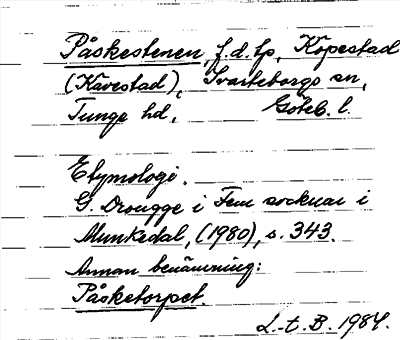 Påskestenen, f.d. lp, Köpestad
(Kavestad), Svarteborgs sn,
Tunge hd, Göteb. l.
Etymologi.
G. Drougge i Fem socknar i
Munkedal, (1980), s. 343.
Annan benämning:
Påsketorpet.
L-t. B. 1984.